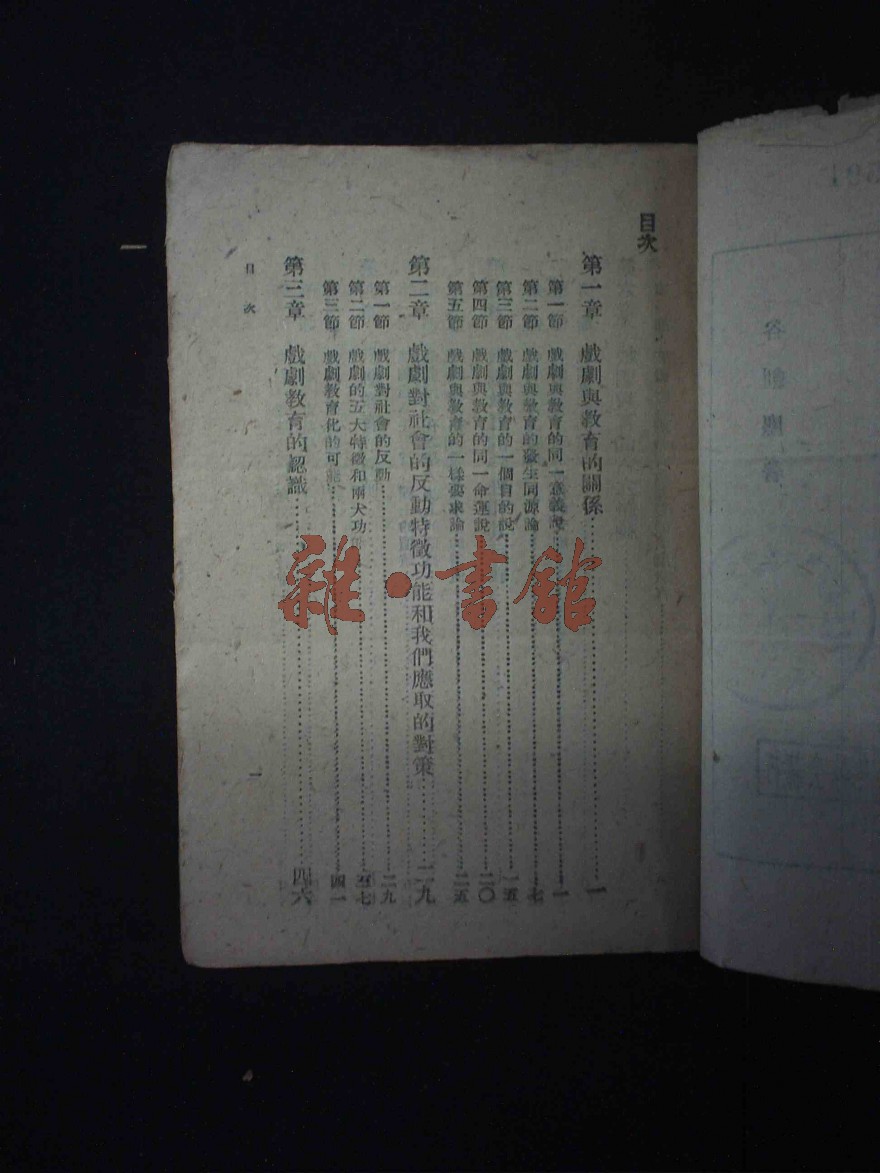 目次
第一章　戲劇與教育的關係……一
第一節　戲劇與教育的同一意義說……一
第二節　戲劇與教育的發生同源論……七
第三節　戲劇與教育的一個目的說……一五
第四節　戲劇與教育的同一命運說……二〇
第五節　戲劇與教育的一樣要求論……二五
第二章　戲劇對社會的反動特徵功能和我們應取的對策……二九
第一節　戲劇對社會的反動……二九
第二節　戲劇的五大特徵和兩大功……七
第三節　戲劇教育化的可能……四一
第三章　戲劇教育的認識……四六
目次
一
雜·書館